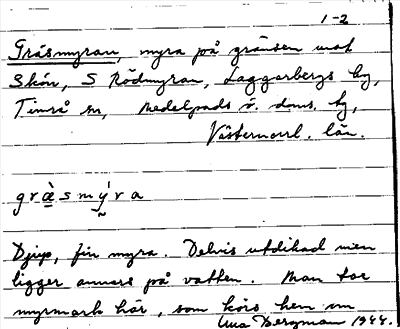 1-2
Gräsmyran, myra på gränsen mot
Skön, S Rödmyran, Laggarbergs by,
Timrå sn, Medelpads v. doms. tg,
Västernorrl. län.
græsmy̰ra
Djup, fin myra. Delvis utdikad men
ligger annars på vatten. Man tar
myrmark här, som körs hem
Bergman 1944.